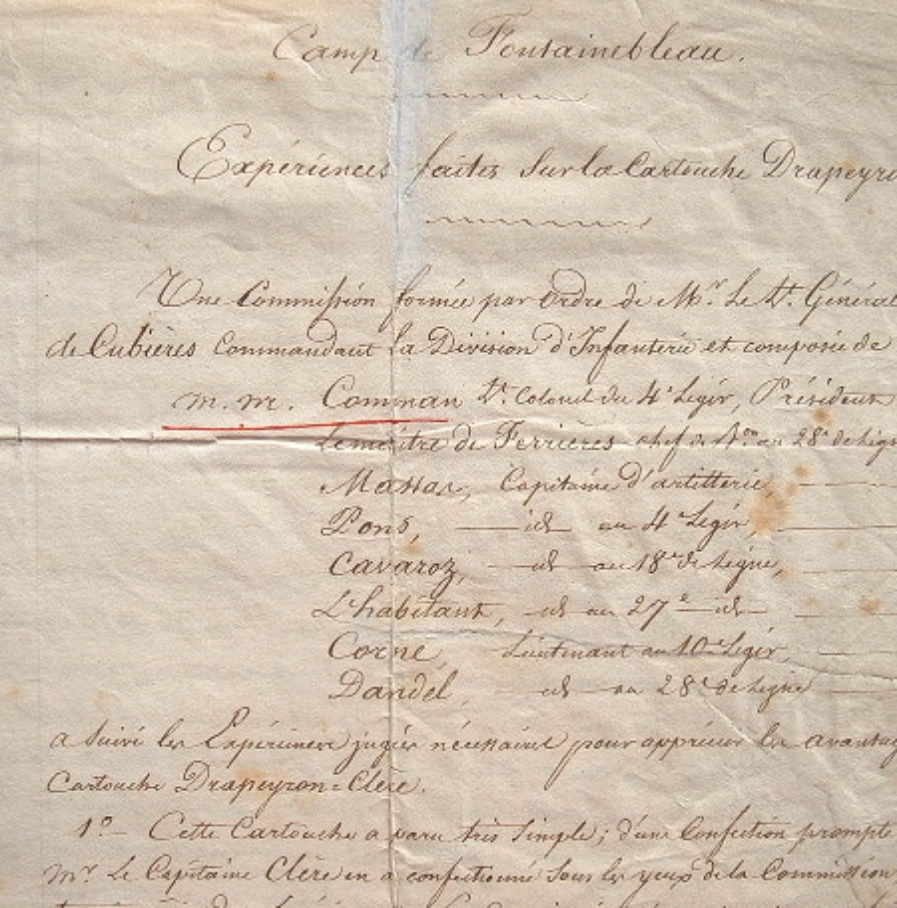 Camp de Fontainebleau.
Expériences faites Sur la Cartouche Drapeyro
Une Commission formée par Ordre de Mr. Le Lt. Général
de Cubières Commandant la Division d'Infanterie et composée de
M. M. Comman Lt. Colonel du 4e Léger, Président
Lemaitre de Ferrières chef de Bon au 28e de Ligne
Massas, Capitaine d'artillerie,
Pons, id au 4e Léger,
Cavaroz, id au 18e de Ligne,
L'habitant, id au 27e id
Corne, Lieutenant au 10e Léger,
Dandel, id au 28e de Ligne
a Suivi les Expériences jugées nécessaires pour apprécier les avantag
Cartouche Drapeyron=Clère.
1o- Cette Cartouche a paru très Simple; d'une Confection prompte
Mr Le Capitaine Clère en a confectionné Sous les yeux de la Commission